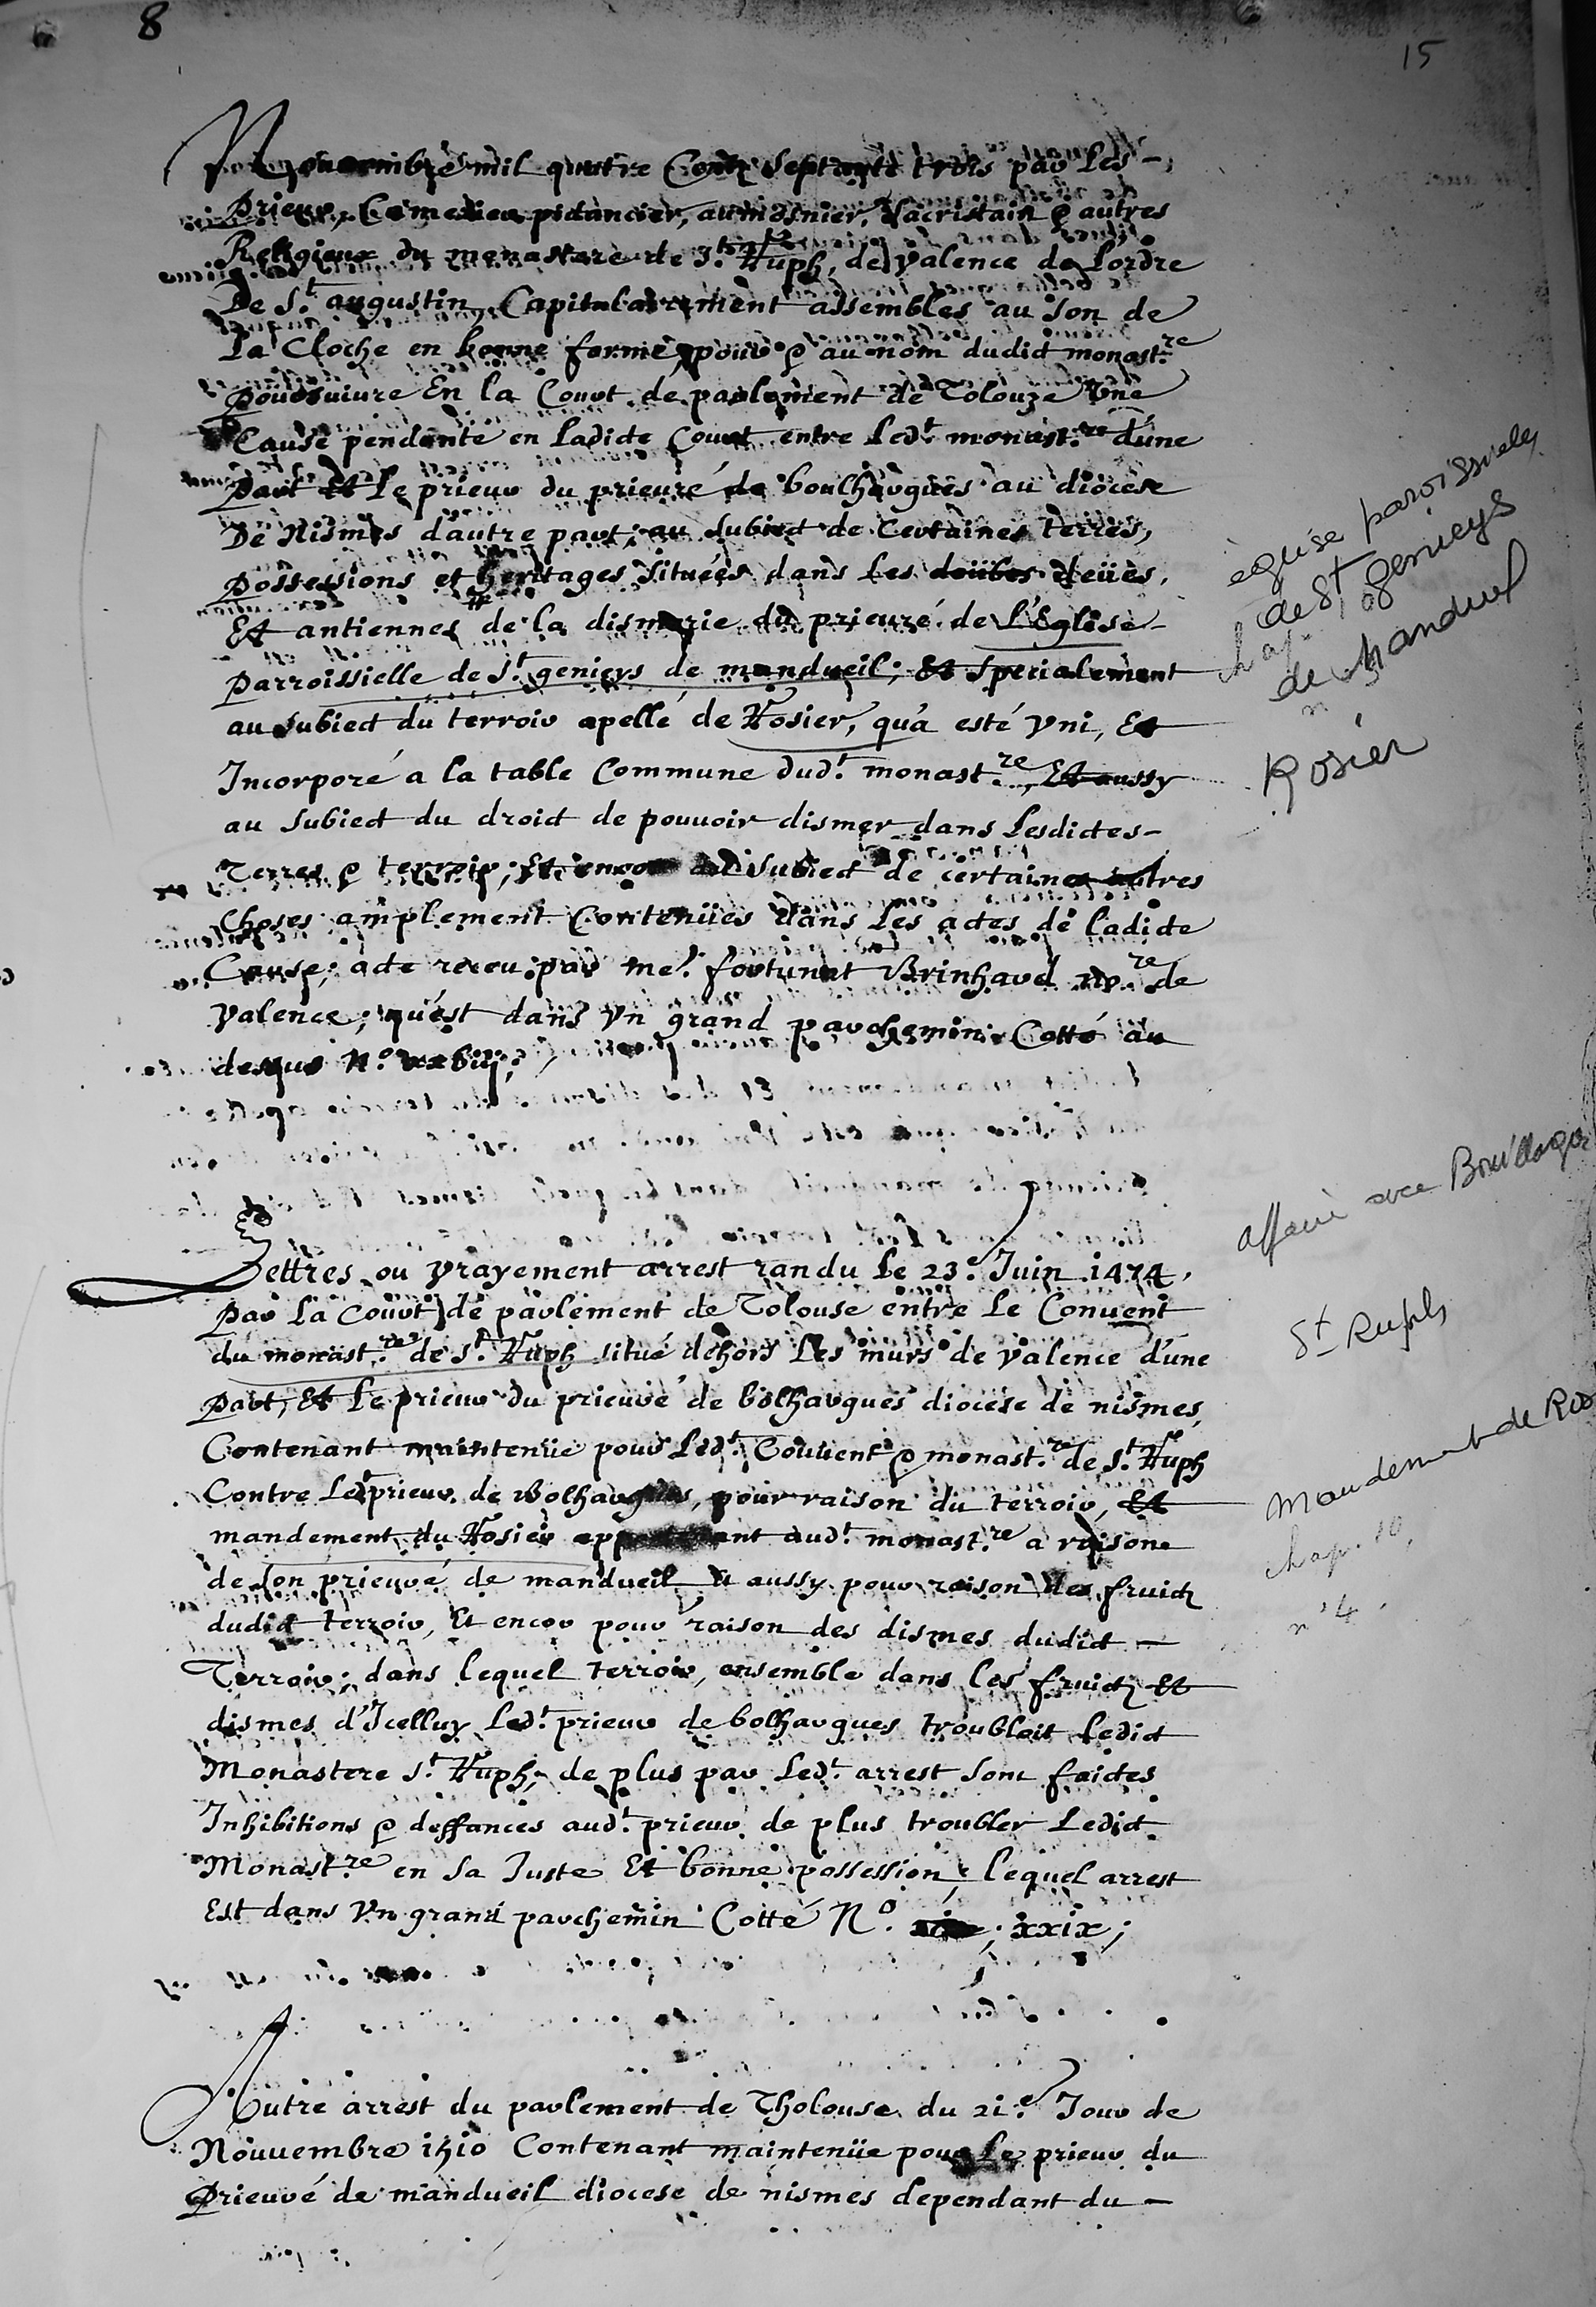 8
15
Nouembre mil quatre Centz septante trois par les -
Prieur, Cemedieu pidancier, aumosnier, sacristain & autres
Religieux du monastere de St. Ruph, de Valence de Lordre
De St. augustin, Capitulairement assembles au son de
La Cloche en bonne forme, pour & au nom dudict monast.re
Poursuiure En la Court de parlement de Tolouze Vne
Cause pendante en Ladicte Court entre Ledt. monast.re d'une
Part Et Le prieur du prieuré de boulhargues au diocese
De Nismes d'autre part, au subiect de Certaines terres,
possessions et heritages situées dans les deües,
Et antiennes de la dismerie du prieuré de L'Eglise -
Parroissielle de St. genieys de mandueil; Et specialement
au subiect du terroir apellé de Rosier, qu'a esté Vni, Et
Incorporé a la table Commune dudt. monast.re, Et aussy
au subiect du droict de pouuoir dismer dans Lesdictes -
Terres & terroir; Et encor au subiect de certaines autres
Choses amplement Contenües dans les actes de ladicte
Cause; acte receu par me. fortunat Brinhard no.re de
Valence; qu'est dans Vn grand parchemin Cotté au
dessus N.o xxbiij;
Lettres ou Vrayement arrest randu Le 23.e Juin 1474,
Par La Court de parlement de Tolouse entre Le Conuent
du monast.re de St. Ruph situé dehors Les murs de Valence d'une
Part, Et Le prieur du prieuré de bolhargues diocese de nismes,
Contenant maintenüe pour Ledt. Couuent & monast.re de St. Ruph
Contre Ledt prieur de Bolhargues, pour raison du terroir, Et
mandement du Rosier appartenant audt. monast.re a raison
de son prieuré de mandueil Et aussy pour raison des fruictz
dudict terroir, Et encor pour raison des dismes dudict -
Terroir; dans lequel terroir, ensemble dans les fruictz Et
dismes d'Icelluy Ledt. prieur de bolhargues troubloit Ledict
Monastere St. Ruph; de plus par Ledt. arrest sont faictes
Inhibitions & deffances audt. prieur de plus troubler Ledict
Monast.re en sa Juste Et bonne possession; lequel arrest
Est dans Vn grand parchemin Cotté N.o xxix;
Autre arrest du parlement de Tholouse du 21.e Jour de
Nouuembre 1510 Contenant maintenüe pour Le prieur du
Prieuré de mandueil diocese de nismes dependant du -
église paroissiele
de St genieys
chap.
de Manduel
n
Rosier
affaire avec Bouillargues
St Ruph
Mandement de Ros
chap. 10,
n° 4.